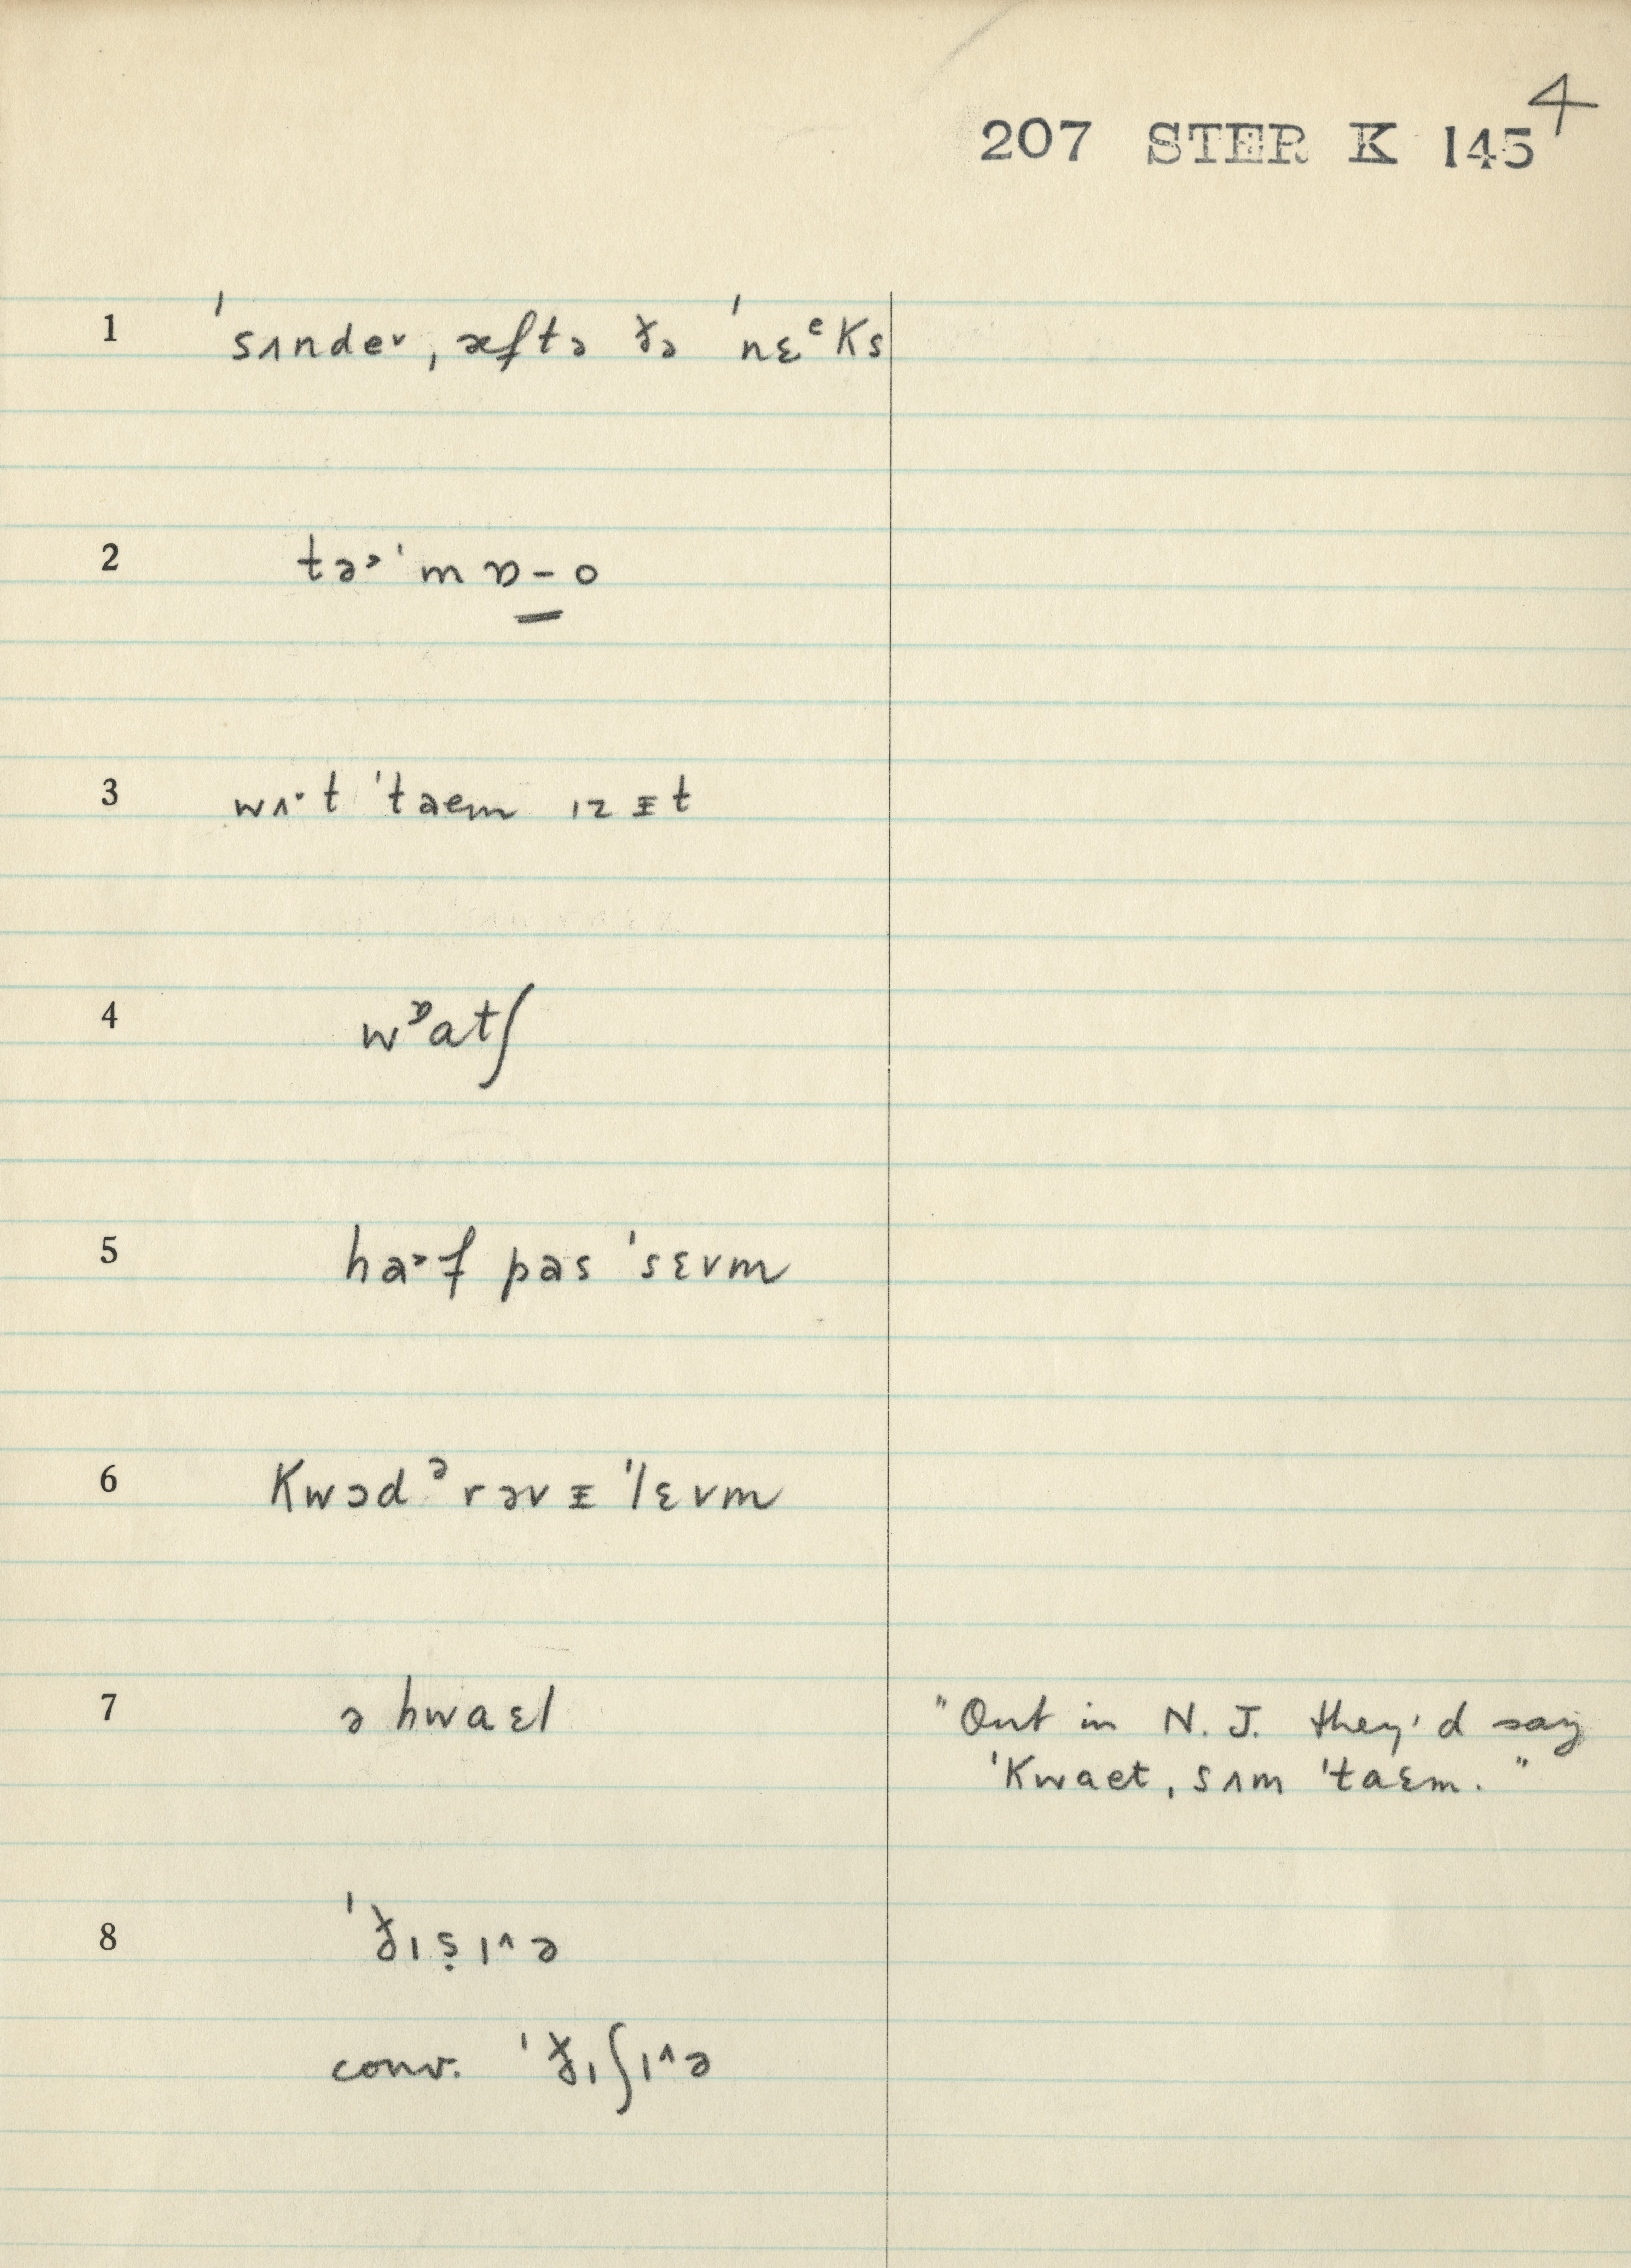 4
207 STER K 145
1 ˈsʌndeᵛ, æftə ðə ˈnɛᵉks
2 tə˃ ˈmɒ-o
3 wʌ·t ˈtaem ɪz ᵻt
4 wᶛatʃ
5 ha˃f pas ˈsɛvm
6 kwɔdᵊrəvᵻ ˈlɛvm
7 ə hwaɛl
"Out in N. J. they'd say
ˈkwaet, sʌm ˈtaɛm."
8 ˈðɪṣɪ^ə
conv. ˈðɪʃɪ^ə